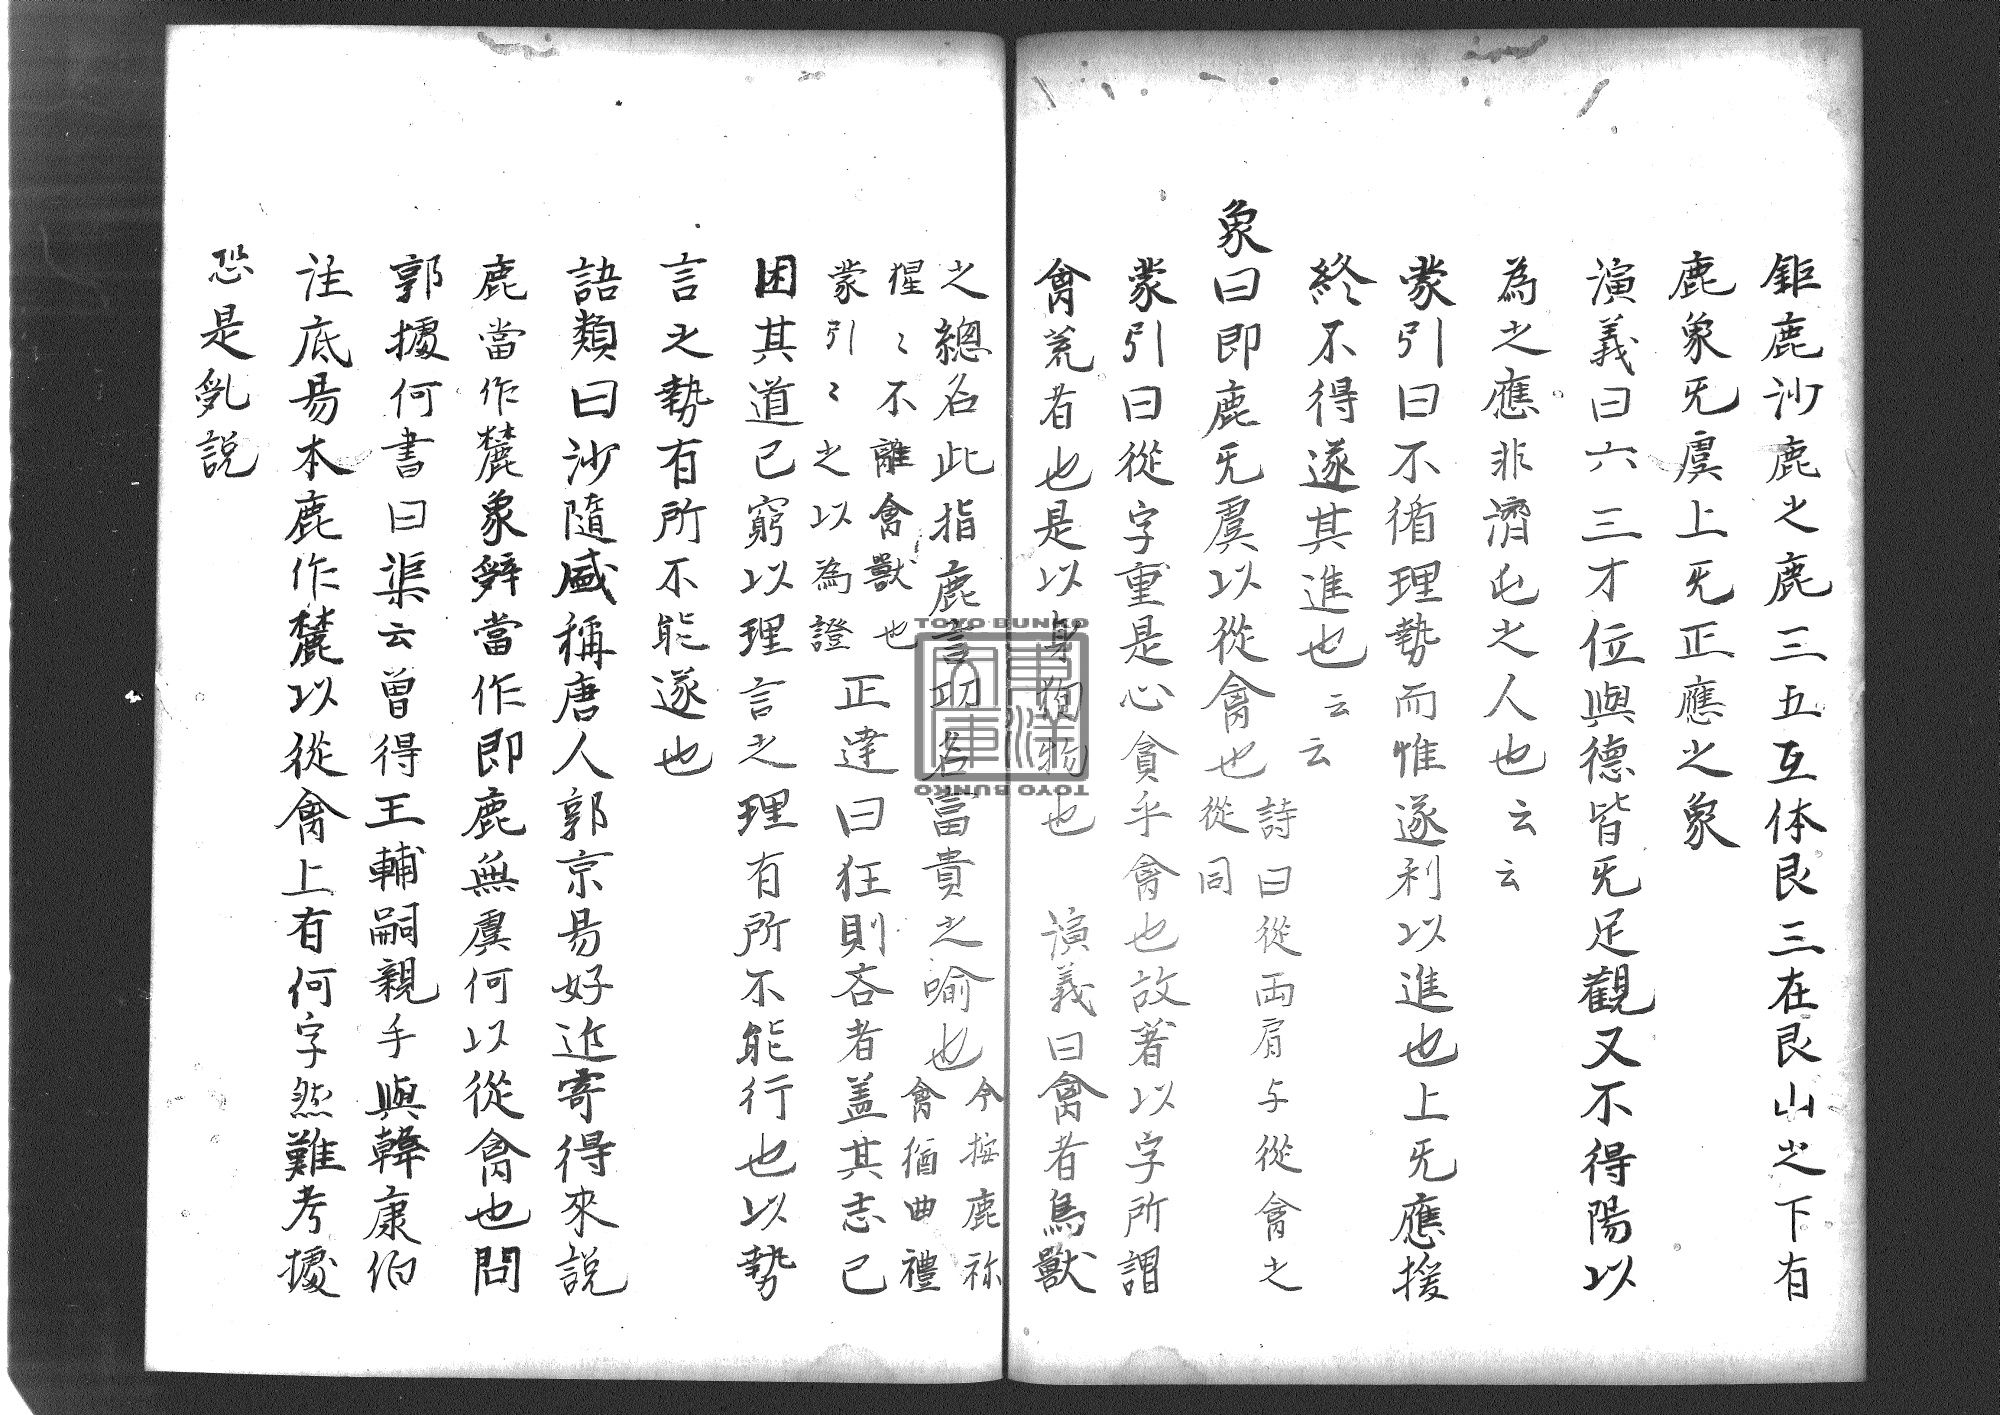 鉅鹿沙鹿之鹿三五互体艮三在艮山之下有
鹿象旡虞上旡正應之象
演義曰六三才位與德皆旡足觀又不得陽以
為之應非濟屯之人也云云
蒙引曰不循理勢而惟遂利以進也上旡應援
終不得遂其進也云云
象曰即鹿旡虞以從禽也
詩曰從両肩与從禽之
從同
蒙引曰從字重是心貪乎禽也故著以字所謂
禽荒者也是以身狥物也 演義曰禽者鳥獸
之總名此指鹿言功名富貴之喻也
今按鹿称
禽猶曲禮
猩〻不離禽獸也
蒙引〻之以為證
正達曰往則吝者盖其志已
困其道已窮以理言之理有所不能行也以勢
言之勢有所不能遂也
語類曰沙隨盛稱唐人郭京易好近寄得來說
鹿當作麓象辤當作即鹿無虞何以從禽也問
郭據何書曰渠云曾得王輔嗣親手與韓康伯
注底易本鹿作麓以從禽上有何字然難考據
恐是乱說
TOYO BUNKO
東洋文庫
TOYO BUNKO